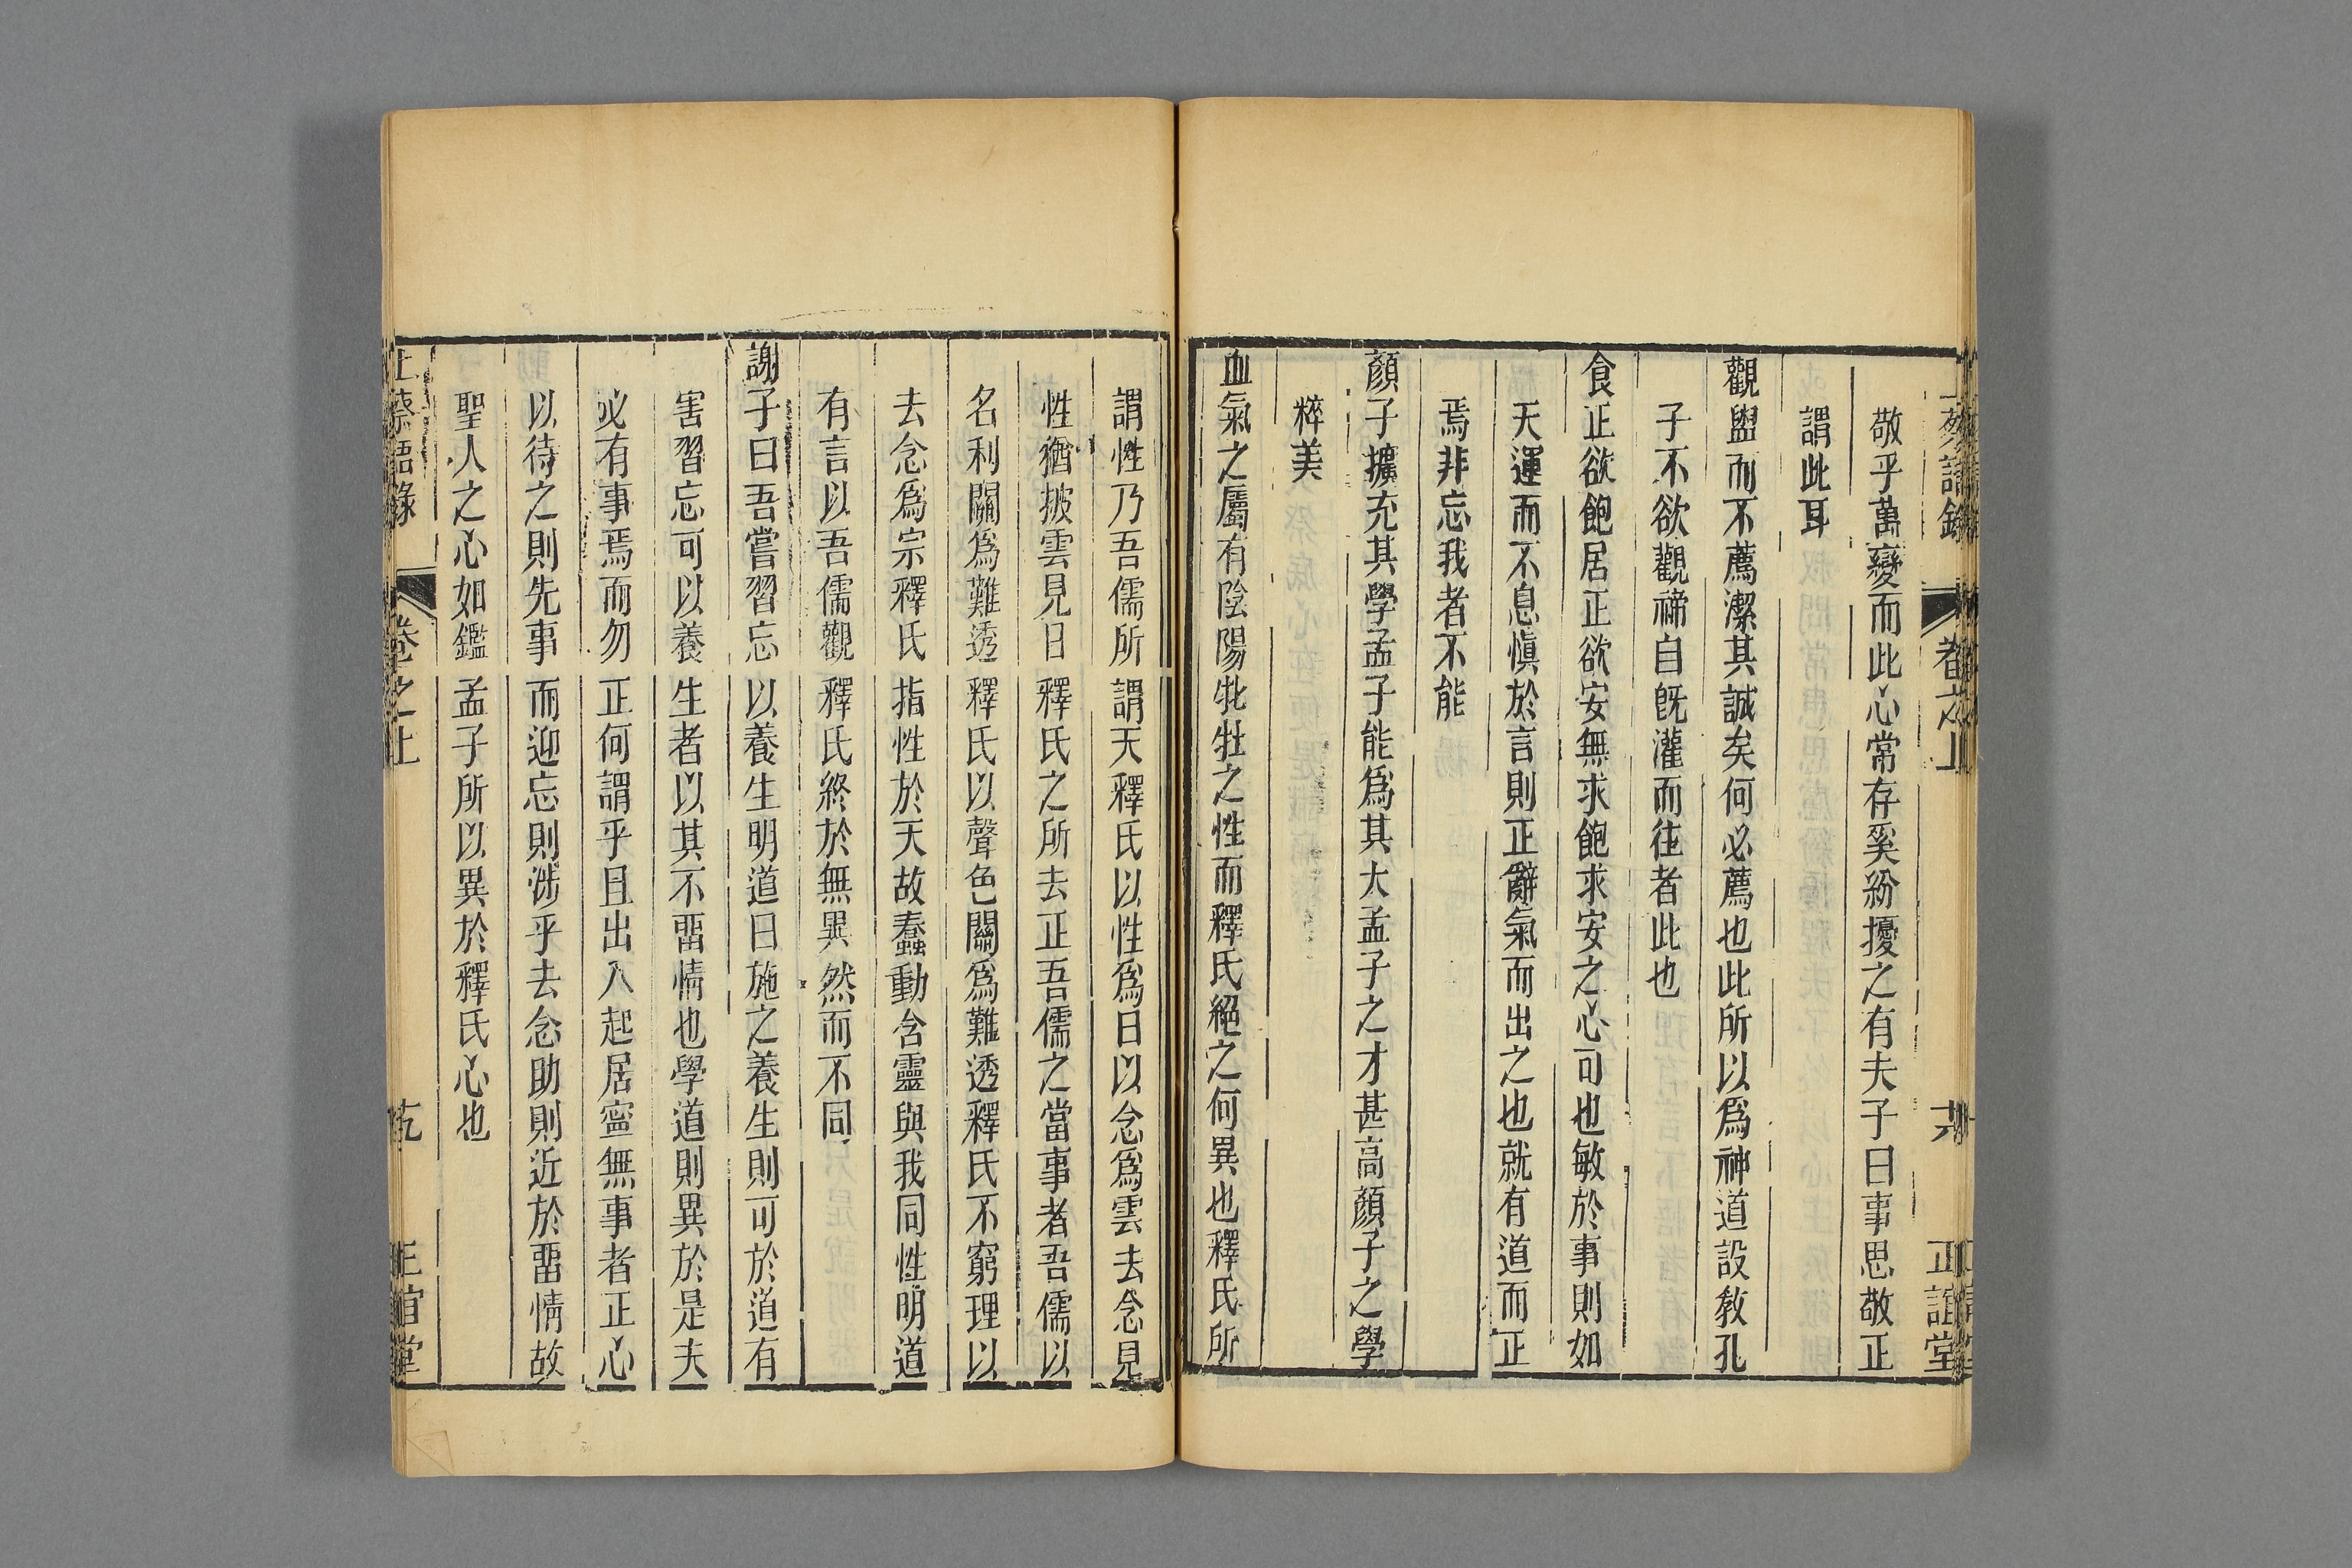 上蔡語錄
卷之上
正誼堂
敬乎萬變而此心常存奚紛擾之有夫子曰事思敬正
謂此耳
觀盥而不薦潔其誠矣何必薦也此所以爲神道設敎孔
子不欲觀禘自旣灌而往者此也
食正欲飽居正欲安無求飽求安之心可也敏於事則如
天運而不息愼於言則正辭氣而出之也就有道而正
焉非忘我者不能
顏子擴充其學孟子能爲其大孟子之才甚高顏子之學
粹美
血氣之屬有陰陽牝牡之性而釋氏絕之何異也釋氏所
謂性乃吾儒所謂天釋氏以性爲日以念爲雲去念見
性猶披雲見日釋氏之所去正吾儒之當事者吾儒以
名利關爲難透釋氏以聲色關爲難透釋氏不窮理以
去念爲宗釋氏指性於天故蠢動含靈與我同性明道
有言以吾儒觀釋氏終於無異然而不同
謝子曰吾嘗習忘以養生明道曰施之養生則可於道有
害習忘可以養生者以其不畱情也學道則異於是夫
必有事焉而勿正何謂乎且出入起居寧無事者正心
以待之則先事而迎忘則涉乎去念助則近於畱情故
聖人之心如鑑孟子所以異於釋氏心也
上蔡語錄
卷之上
正誼堂